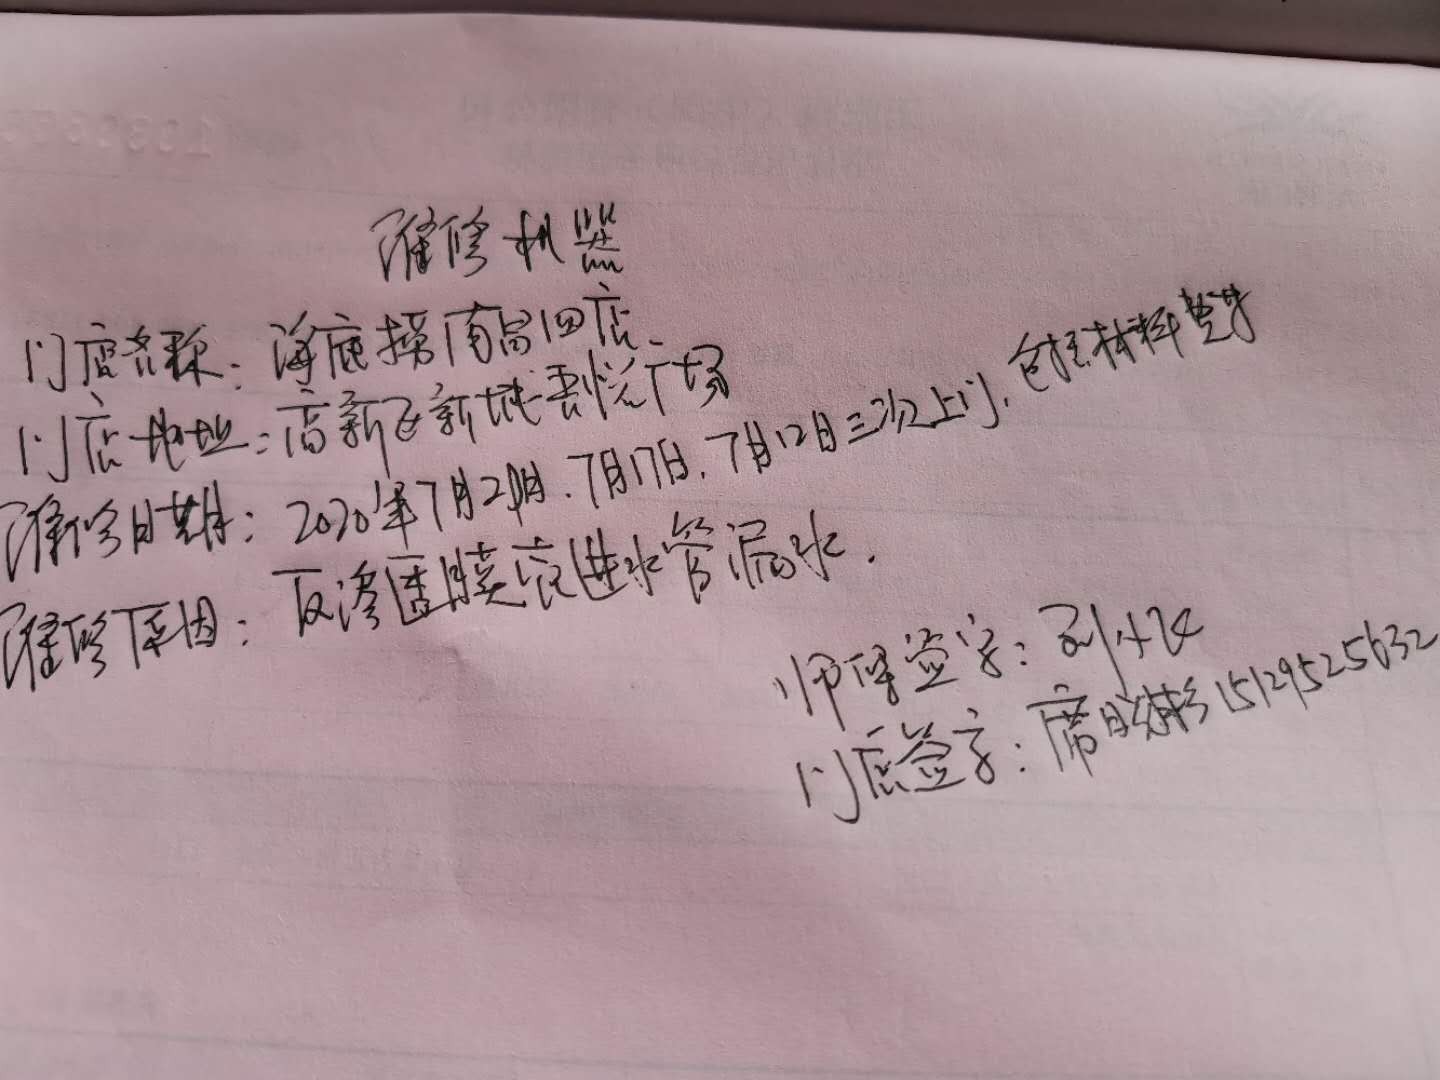 维修机器
门店名称：海底捞南昌四店
门店地址：高新区新城吾悦广场
维修日期：2020年7月2日、7月17日、7月12日三次上门，包括材料费
维修原因：反渗透膜底进水管漏水．
师傅签字：
门店签字：席 15129525632